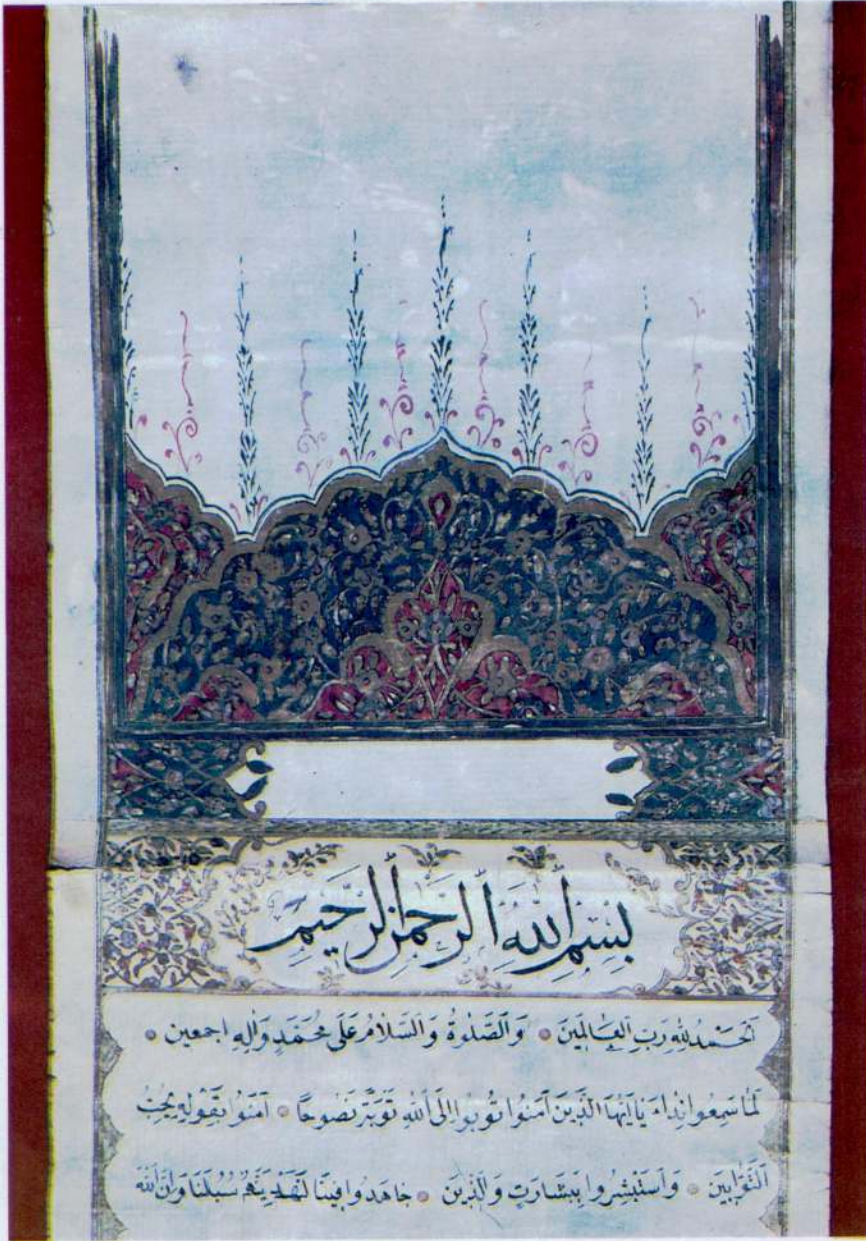 بِسْمِ اللهِ الرَّحْمٰنِ الرَّحِيمِ
اَلْحَمْدُ لِلّٰهِ رَبِّ الْعَالَمِينَ • وَالصَّلٰوةُ وَالسَّلَامُ عَلٰى مُحَمَّدٍ وَاٰلِهِ اجمعين •
لَمَّا سَمِعُوا نِدَاءَ يَا اَيُّهَا الَّذِينَ آمَنُوا تُوبُوا اِلَى اللهِ تَوْبَةً نَصُوحًا • آمَنُوا بِقَوْلِهِ يُحِبُّ
التَّوَّابِينَ • وَاسْتَبْشِرُوا بِبَشَارَتِ وَالَّذِينَ • جَاهَدُوا فِينَا لَنَهْدِيَنَّهُمْ سُبُلَنَا وَاِنَّ اللهَ